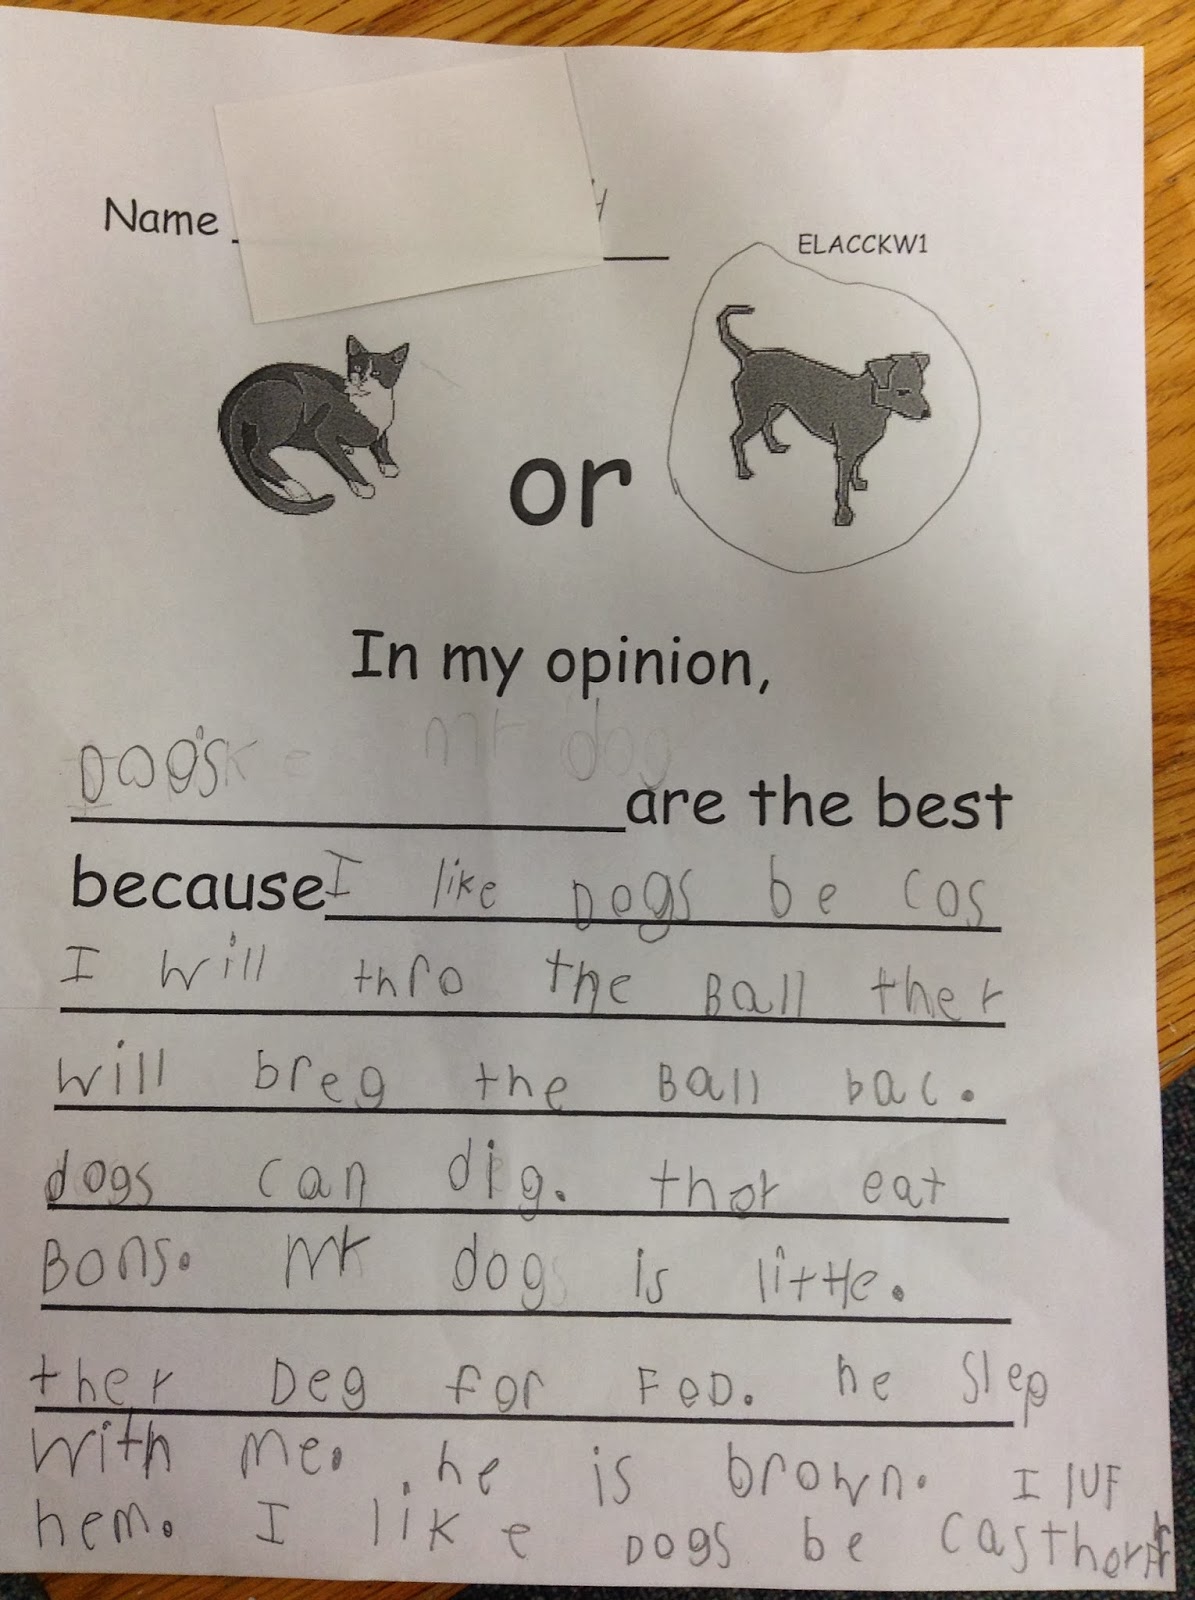 Name
ELACCKW1
or
In my opinion,
Dogs are the best
because I like Dogs be cos
I will thro the Ball ther
will breg the Ball bac.
dogs can dig. thor eat
Bons. dog is little.
ther Deg for FeD. he Slep
with me. he is brown. I luf
hem. I like Dogs be cas